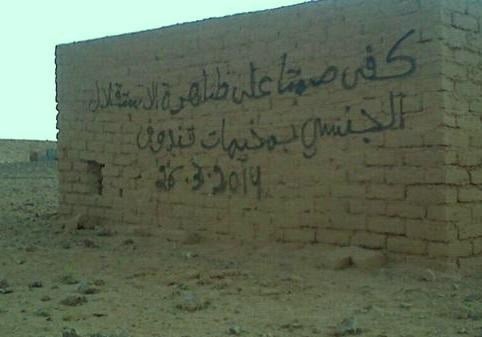 كفى صمتا على ظاهرة الاستقلال
الجنسي بمخيمات تندوف
26.3.2014